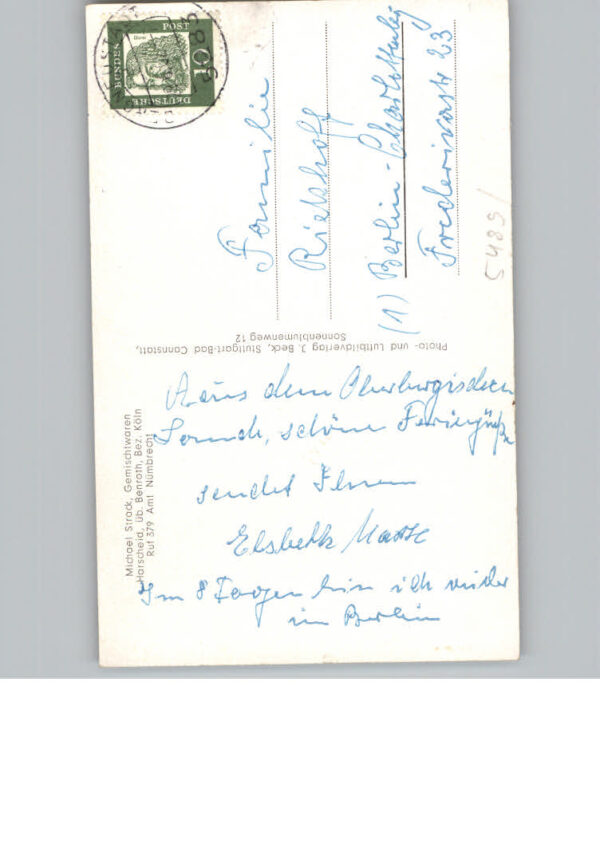 Michael Strack, Gemischtwaren
Harscheid, üb. Benroth, Bez. Köln
Ruf 379 Amt Nümbrecht
Aus dem Oberbergischen
Lande, schöne Feriengrüße
sendet Ihnen
Elsbeth
Im 8 Tagen bin ich wieder
in Berlin
Photo- und Luftbildverlag J. Beck, Stuttgart-Bad Cannstatt,
Sonnenblumenweg 12
DEUTSCHE
BUNDES
POST
10
Dürer
Familie
Riekhoff
(1) Berlin-Charlottenbg
23
5489/